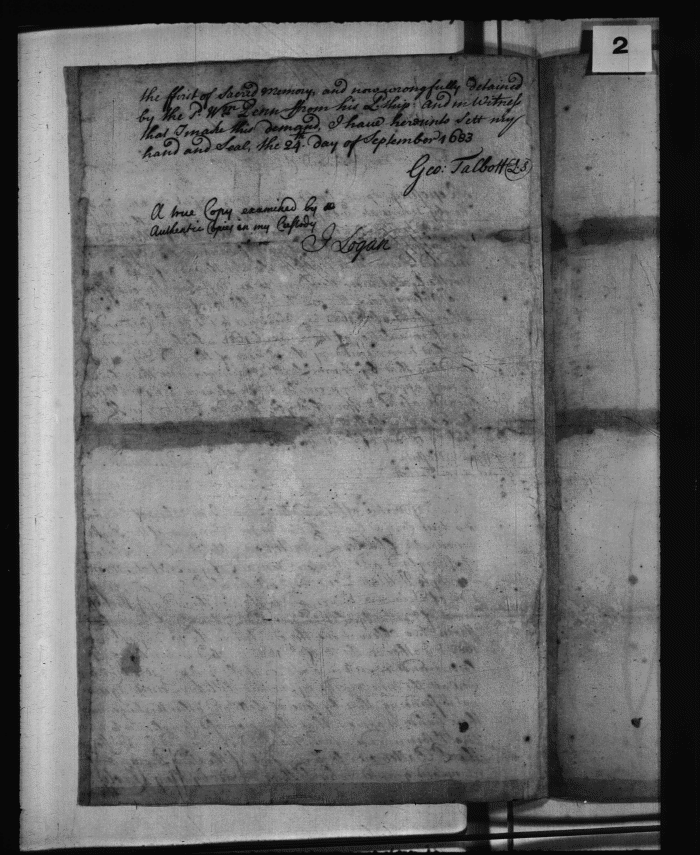 2
the ffirst of Sacred memory, and now wrongfully detained
by the sd. Wm. Penn ffrom his Ldship: and in Witness
that I made this demand, I have hereunto Sett my
hand and Seal, the 24th. day of September 1683
Geo: Talbott LS
A true Copy examined by
Authentic Copies in my Custody
J Logan